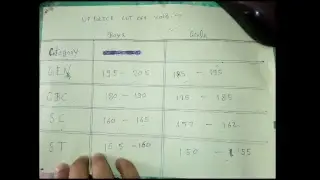 UP BASIC cut off 2018
Boys Girls
Category
GEN 195 - 202 185 - 195
OBC 180 - 190 175 - 185
SC 160 - 165 157 - 162
ST 15.5 - 160 150 - 155